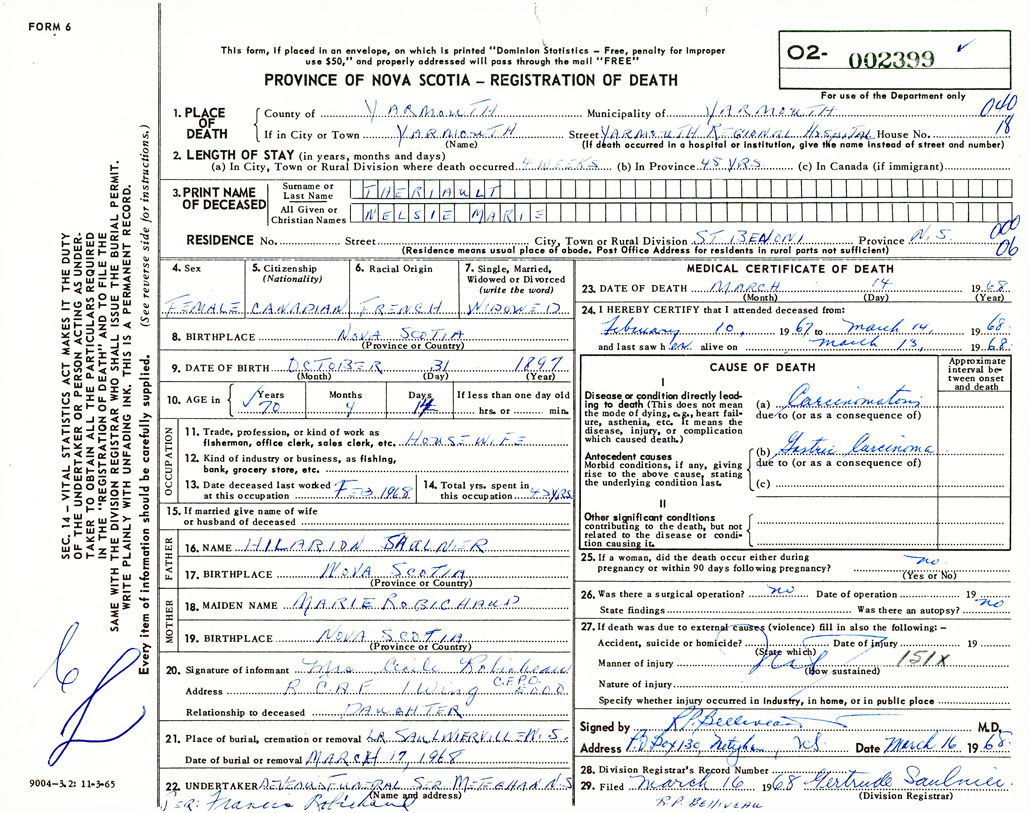 FORM 6
This form, if placed in an envelope, on which is printed "Dominion Statistics – Free, penalty for improper
use $50," and properly addressed will pass through the mail "FREE"
PROVINCE OF NOVA SCOTIA – REGISTRATION OF DEATH
02- 002399
For use of the Department only
040
18
1. PLACE OF DEATH
County of YARMOUTH Municipality of YARMOUTH
If in City or Town YARMOUTH Street YARMOUTH REGIONAL HOSPITAL House No.
(Name) (If death occurred in a hospital or institution, give the name instead of street and number)
2. LENGTH OF STAY (in years, months and days)
(a) In City, Town or Rural Division where death occurred 4 WEEKS (b) In Province 45 YRS. (c) In Canada (if immigrant)
3. PRINT NAME OF DECEASED
Surname or Last Name THERIAULT
All Given or Christian Names NELSIE MARIE
RESIDENCE No. Street City, Town or Rural Division ST BENONI Province N.S.
(Residence means usual place of abode. Post Office Address for residents in rural parts not sufficient)
000
06
4. Sex
FEMALE
5. Citizenship
(Nationality)
CANADIAN
6. Racial Origin
FRENCH
7. Single, Married,
Widowed or Divorced
(write the word)
WIDOWED
8. BIRTHPLACE NOVA SCOTIA
(Province or Country)
9. DATE OF BIRTH OCTOBER 31 1897
(Month) (Day) (Year)
10. AGE in Years Months Days If less than one day old
70 4 14 hrs. or min.
OCCUPATION
11. Trade, profession, or kind of work as
fisherman, office clerk, sales clerk, etc. HOUSEWIFE
12. Kind of industry or business, as fishing,
bank, grocery store, etc.
13. Date deceased last worked
at this occupation FEB 1968
14. Total yrs. spent in
this occupation YRS
15. If married give name of wife
or husband of deceased
FATHER
16. NAME HILARION SAULNIER
17. BIRTHPLACE NOVA SCOTIA
(Province or Country)
MOTHER
18. MAIDEN NAME MARIE ROBICHAUD
19. BIRTHPLACE NOVA SCOTIA
(Province or Country)
20. Signature of informant Mrs Cecile Robicheau
Address R.C.A.F 1 Wing C.F.P.O. 5000
Relationship to deceased DAUGHTER
21. Place of burial, cremation or removal LR. SAULNIERVILLE N.S.
Date of burial or removal MARCH 17, 1968
22. UNDERTAKER DEVEAU FUNERAL SER METEGHAN N.S
(Name and address)
Francis Robichaud
MEDICAL CERTIFICATE OF DEATH
23. DATE OF DEATH MARCH 14 1968.
(Month) (Day) (Year)
24. I HEREBY CERTIFY that I attended deceased from:
February 10, 1967 to March 14, 1968.
and last saw her alive on March 13, 1968.
CAUSE OF DEATH
Approximate interval between onset and death
I
Disease or condition directly leading to death (This does not mean the mode of dying, e.g., heart failure, asthenia, etc. It means the disease, injury, or complication which caused death.)
(a) Carcinomatosis
due to (or as a consequence of)
Antecedent causes
Morbid conditions, if any, giving rise to the above cause, stating the underlying condition last.
(b) Gastric Carcinoma
due to (or as a consequence of)
(c)
II
Other significant conditions
contributing to the death, but not related to the disease or condition causing it.
25. If a woman, did the death occur either during
pregnancy or within 90 days following pregnancy? no.
(Yes or No)
26. Was there a surgical operation? no Date of operation 19
State findings Was there an autopsy? no
27. If death was due to external causes (violence) fill in also the following: –
Accident, suicide or homicide? Date of injury 19
(State which)
Manner of injury 151X
(How sustained)
Nature of injury
Specify whether injury occurred in Industry, in home, or in public place
Signed by R.P. Belliveau M.D.
Address P.O Box 130, Meteghan, N.S Date March 16 1968.
28. Division Registrar's Record Number
29. Filed March 16 1968 Gertrude Saulnier
(Division Registrar)
R.P. BELLIVEAU
SEC. 14 – VITAL STATISTICS ACT MAKES IT THE DUTY
OF THE UNDERTAKER OR PERSON ACTING AS UNDER-
TAKER TO OBTAIN ALL THE PARTICULARS REQUIRED
IN THE "REGISTRATION OF DEATH" AND TO FILE THE
SAME WITH THE DIVISION REGISTRAR WHO SHALL ISSUE THE BURIAL PERMIT.
WRITE PLAINLY WITH UNFADING INK. THIS IS A PERMANENT RECORD.
Every item of information should be carefully supplied. (See reverse side for instructions.)
9004–3.2: 11-3-65